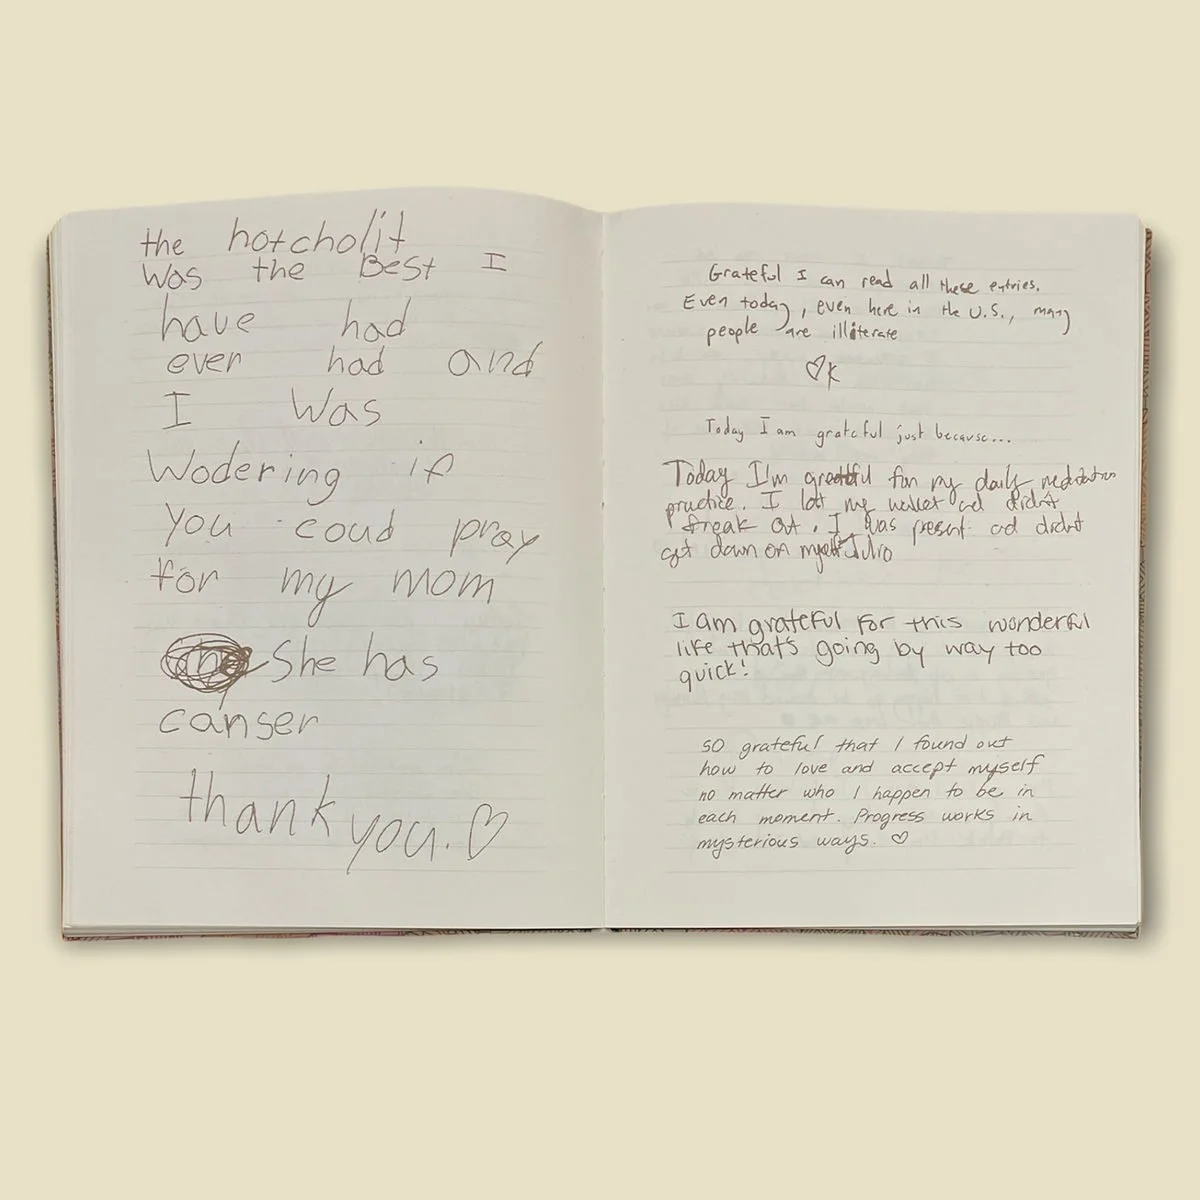 the hotcholit
was the Best I
have had
ever had and
I was
Wodering if
you coud pray
for my mom
She has
canser
thank you. ♡
Grateful I can read all these entries.
Even today, even here in the U.S., many
people are illiterate
♡K
Today I am grateful just because...
Today I'm grateful for my daily meditation
practice. I lost my wallet and didn't
freak out. I was present and didnt
get down on myself Julio
I am grateful for this wonderful
life that's going by way too
quick!
so grateful that I found out
how to love and accept myself
no matter who I happen to be in
each moment. Progress works in
mysterious ways. ♡